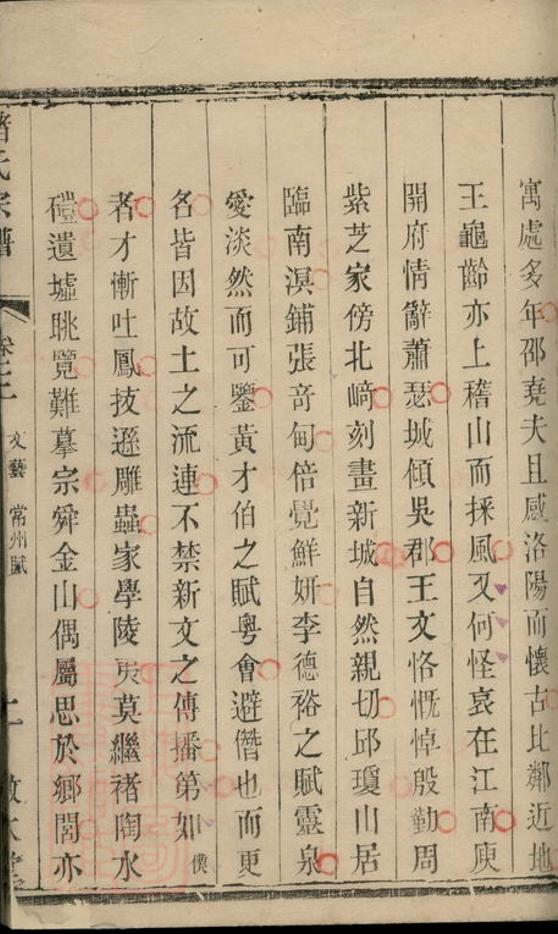 寓處多年邵堯夫且感洛陽而懷古比鄰近地
王龜齡亦上稽山而採風又何怪哀在江南庾
開府情辭蕭瑟城傾吳郡王文恪慨悼殷勤周
紫芝家傍北﨑刻畫新城自然親切邱瓊山居
臨南溟鋪張竒甸倍覺鮮妍李德裕之賦靈泉
愛淡然而可鑒黃才伯之賦粵會避僭也而更
名皆因故土之流連不禁新文之傳播第如僕
者才慚吐鳳技遜雕蟲家學陵夷莫繼褚陶水
磑遺墟眺覽難摹宗舜金山偶屬思於鄉閭亦
褚氏宗譜
卷之二
文藝 常州賦
二
敬本堂